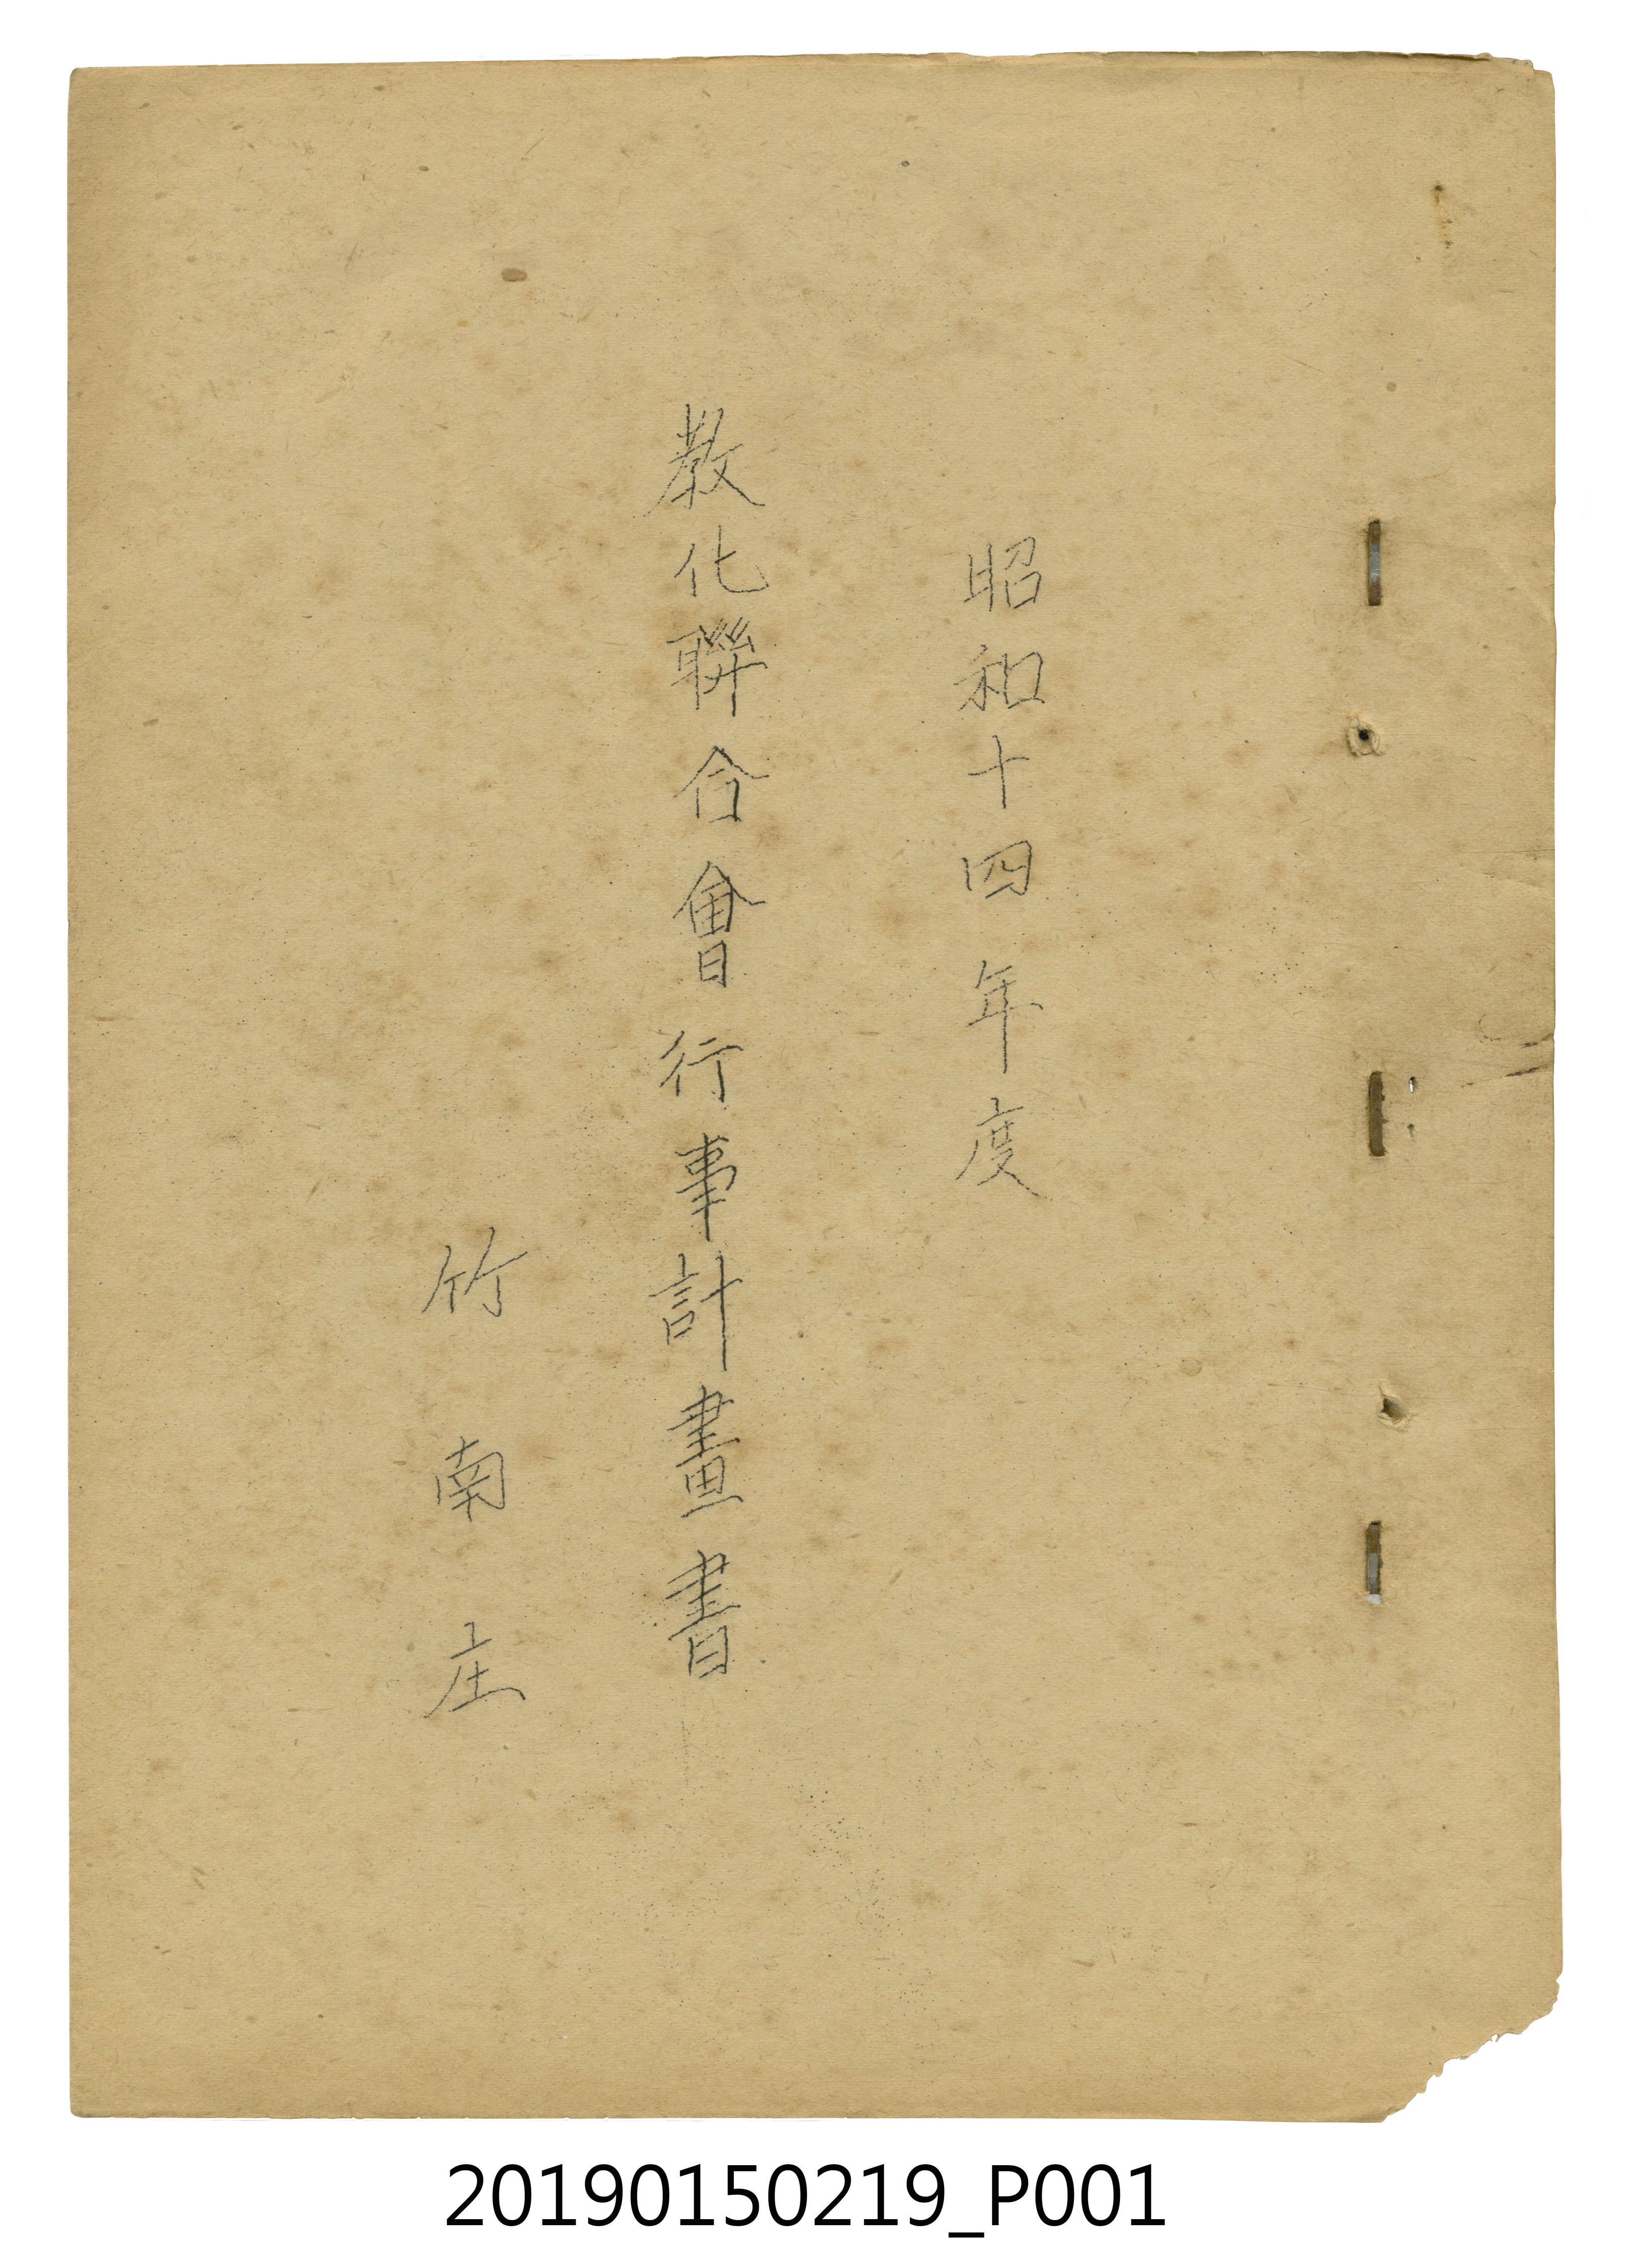 昭和十四年度
教化聯合會行事計畫書
竹南庄
20190150219_P001